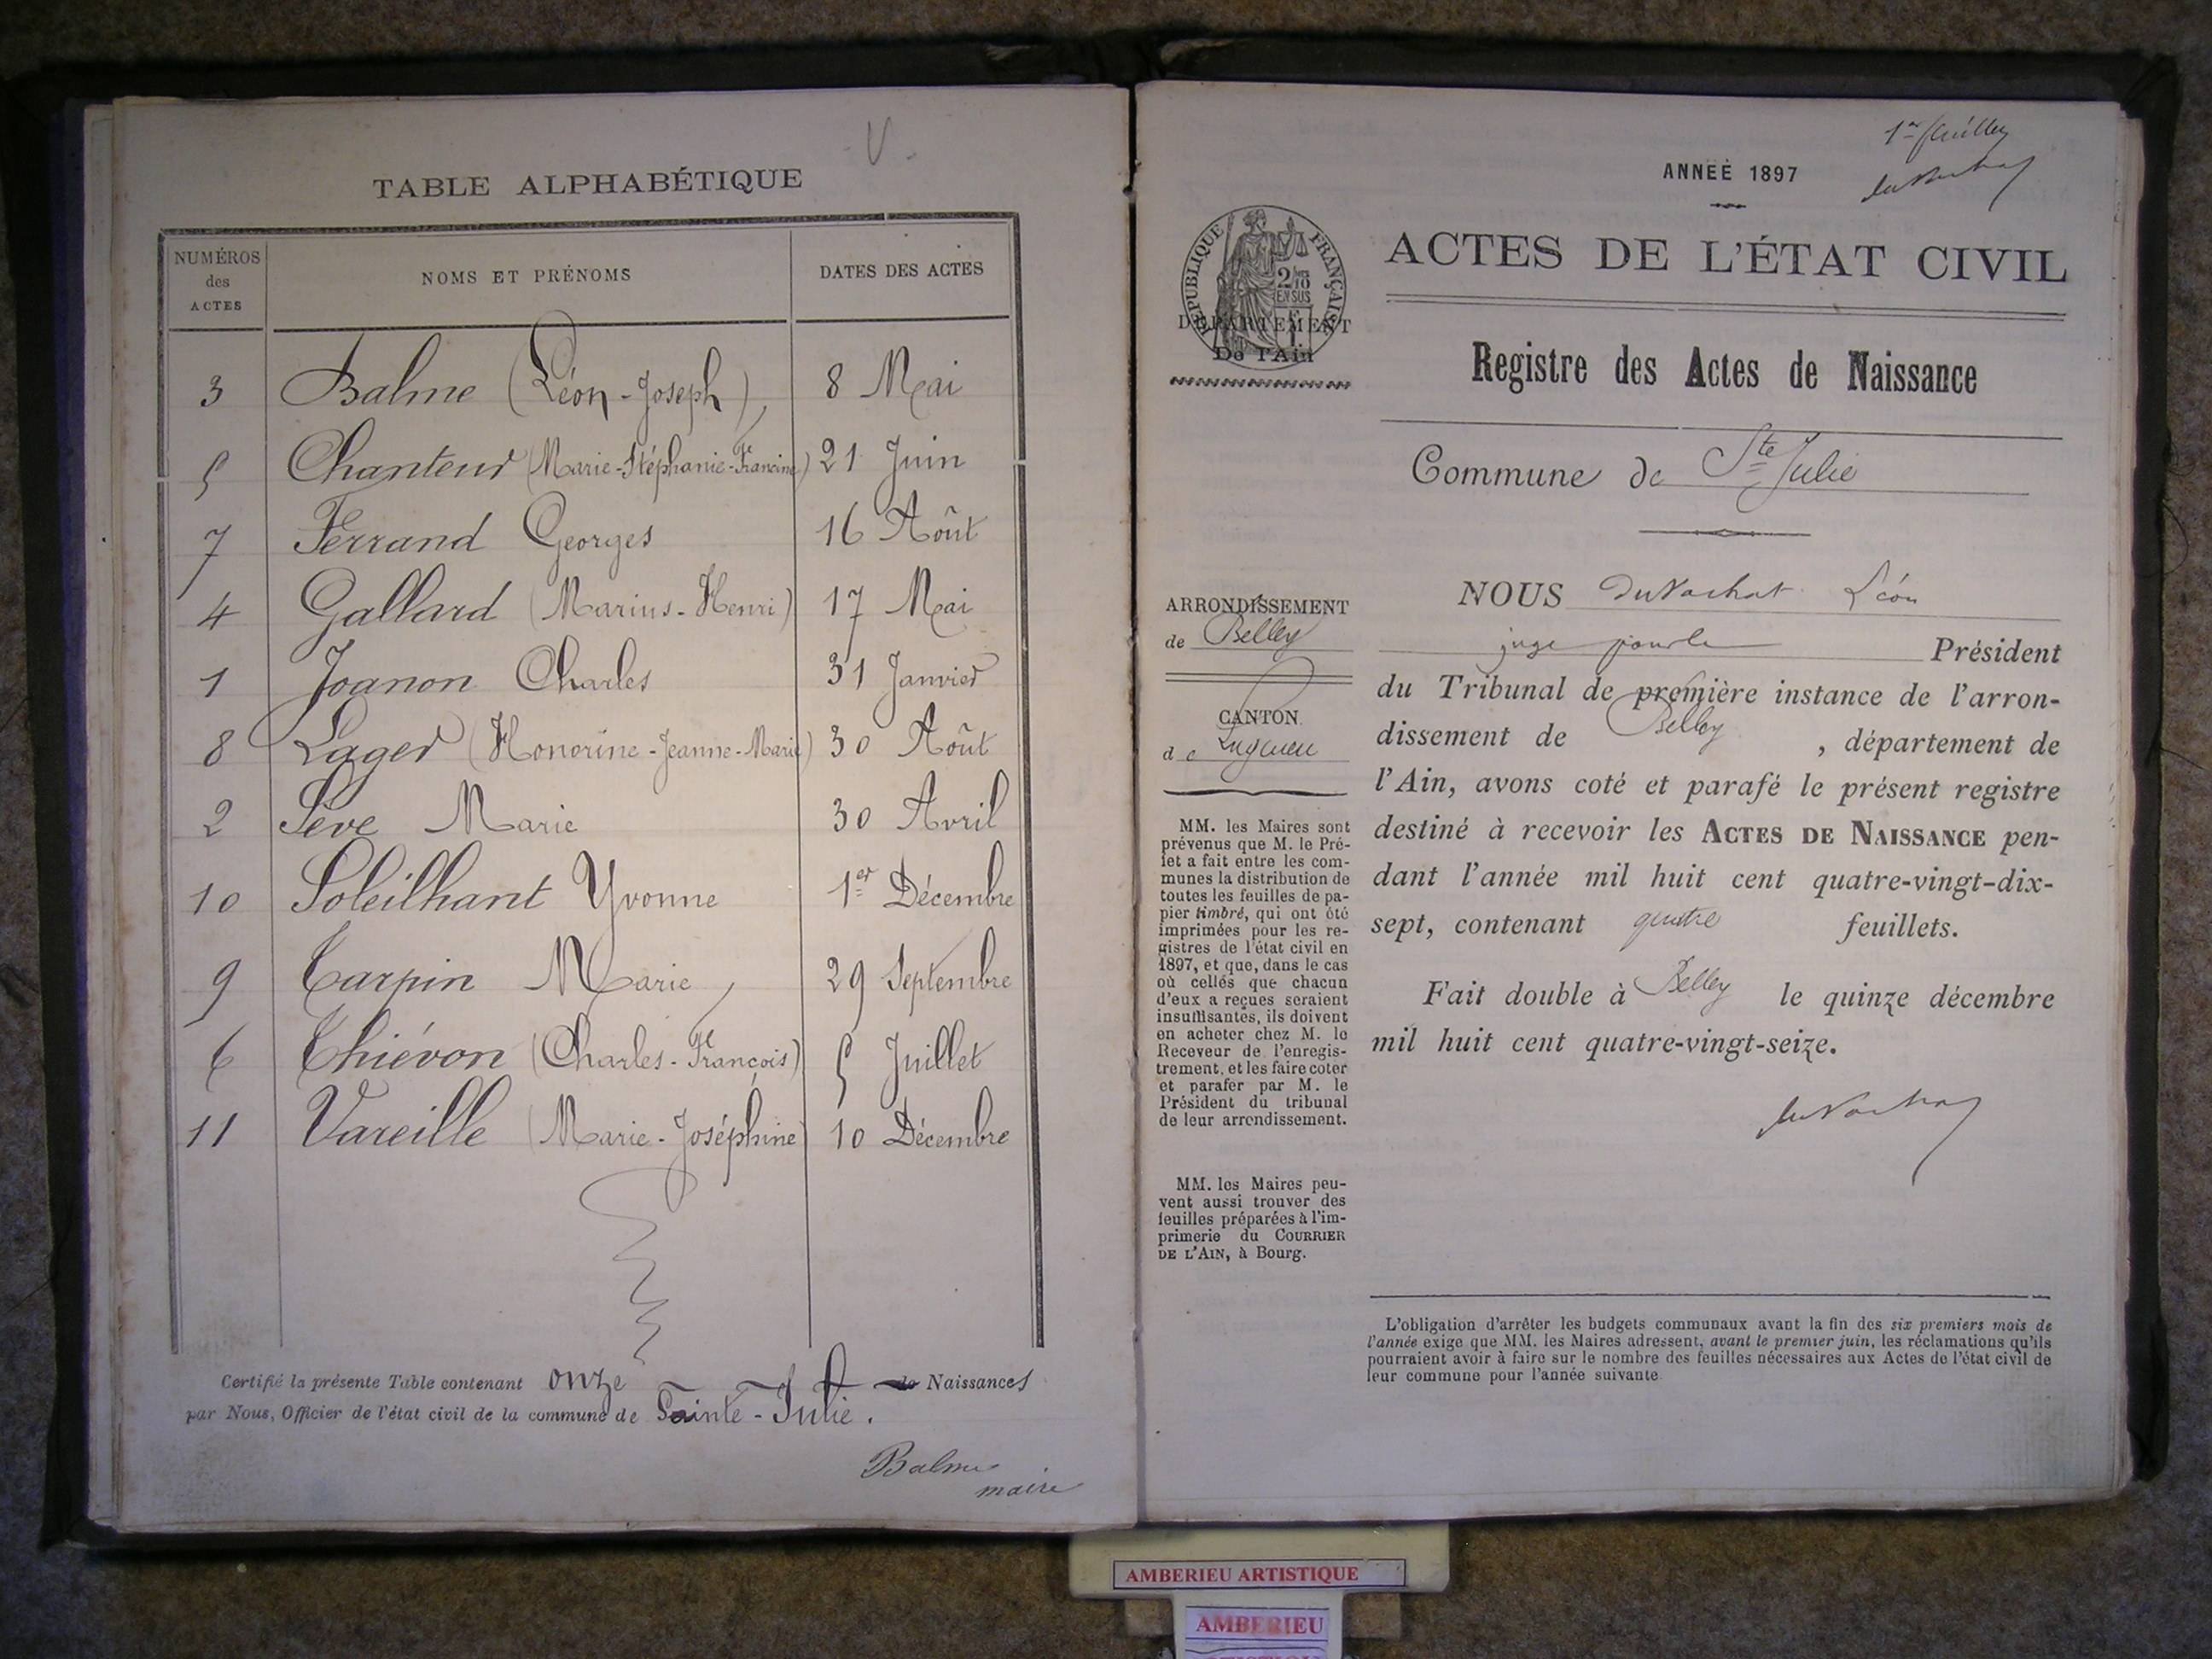 TABLE ALPHABÉTIQUE
NUMÉROS
des
ACTES
NOMS ET PRÉNOMS
DATES DES ACTES
3 Balme (Léon-Joseph) 8 Mai
5 Chanteur (Marie-Stéphanie-Francine) 21 Juin
7 Ferrand Georges 16 Août
4 Gallard (Marius-Henri) 17 Mai
1 Joanon Charles 31 Janvier
8 Lager (Honorine-Jeanne-Marie) 30 Août
2 Sève Marie 30 Avril
10 Soleilhant Yvonne 1er Décembre
9 Tarpin Marie 29 Septembre
6 Thiévon (Charles-François) 5 Juillet
11 Vareille (Marie-Joséphine) 10 Décembre
Certifié la présente Table contenant onze de Naissances
par Nous, Officier de l'état civil de la commune de Sainte-Julie.
Balme
maire
1er feuillet
ANNÉE 1897
RÉPUBLIQUE FRANÇAISE
2/10
EN SUS
DÉPARTEMENT
De l'Ain
ACTES DE L'ÉTAT CIVIL
Registre des Actes de Naissance
Commune de Ste Julie
ARRONDISSEMENT
de Belley
CANTON
de Lagnieu
MM. les Maires sont
prévenus que M. le Pré-
fet a fait entre les com-
munes la distribution de
toutes les feuilles de pa-
pier timbré, qui ont été
imprimées pour les re-
gistres de l'état civil en
1897, et que, dans le cas
où celles que chacun
d'eux a reçues seraient
insuffisantes, ils doivent
en acheter chez M. le
Receveur de l'enregis-
trement, et les faire coter
et parafer par M. le
Président du tribunal
de leur arrondissement.
MM. les Maires peu-
vent aussi trouver des
feuilles préparées à l'im-
primerie du COURRIER
DE L'AIN, à Bourg.
NOUS Duvachat Léon
juge pour le Président
du Tribunal de première instance de l'arron-
dissement de Belley, département de
l'Ain, avons coté et parafé le présent registre
destiné à recevoir les ACTES DE NAISSANCE pen-
dant l'année mil huit cent quatre-vingt-dix-
sept, contenant quatre feuillets.
Fait double à Belley le quinze décembre
mil huit cent quatre-vingt-seize.
L'obligation d'arrêter les budgets communaux avant la fin des six premiers mois de
l'année exige que MM. les Maires adressent, avant le premier juin, les réclamations qu'ils
pourraient avoir à faire sur le nombre des feuilles nécessaires aux Actes de l'état civil de
leur commune pour l'année suivante
AMBERIEU ARTISTIQUE
AMBERIEU